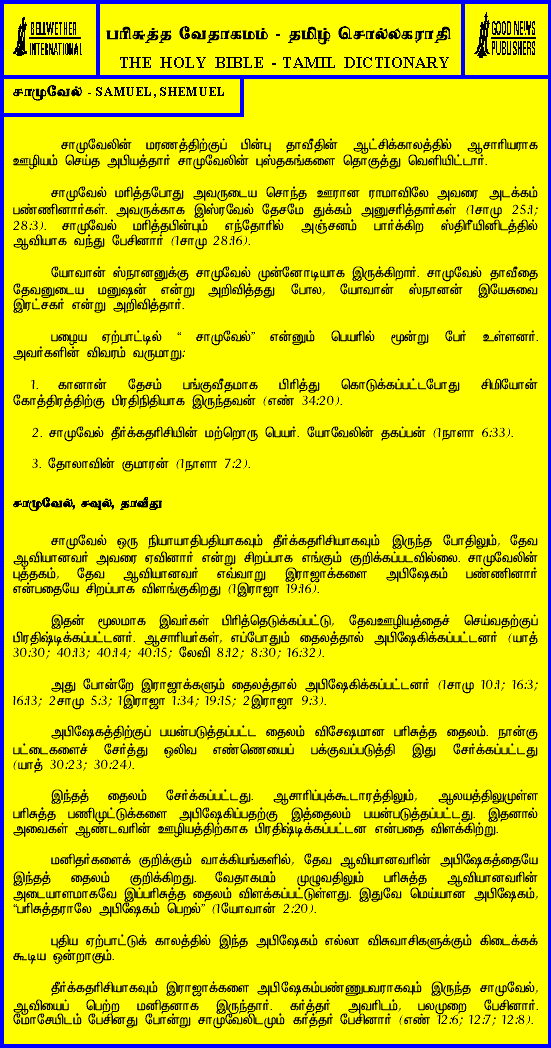 BELLWETHER
INTERNATIONAL
பரிசுத்த வேதாகமம் - தமிழ் சொல்லகராதி
THE HOLY BIBLE - TAMIL DICTIONARY
GOOD NEWS
PUBLISHERS
சாமுவேல் - SAMUEL, SHEMUEL
சாமுவேலின் மரணத்திற்குப் பின்பு தாவீதின் ஆட்சிக்காலத்தில் ஆசாரியராக
ஊழியம் செய்த அபியத்தார் சாமுவேலின் புஸ்தகங்களை தொகுத்து வெளியிட்டார்.
சாமுவேல் மரித்தபோது அவருடைய சொந்த ஊரான ராமாவிலே அவரை அடக்கம்
பண்ணினார்கள். அவருக்காக இஸ்ரவேல் தேசமே துக்கம் அனுசரித்தார்கள் (1சாமு 25:1;
28:3). சாமுவேல் மரித்தபின்பும் எந்தோரில் அஞ்சனம் பார்க்கிற ஸ்திரீயினிடத்தில்
ஆவியாக வந்து பேசினார் (1சாமு 28:16).
யோவான் ஸ்நானனுக்கு சாமுவேல் முன்னோடியாக இருக்கிறார். சாமுவேல் தாவீதை
தேவனுடைய மனுஷன் என்று அறிவித்தது போல, யோவான் ஸ்நானன் இயேசுவை
இரட்சகர் என்று அறிவித்தார்.
பழைய ஏற்பாட்டில் “ சாமுவேல்” என்னும் பெயரில் மூன்று பேர் உள்ளனர்.
அவர்களின் விவரம் வருமாறு:
1. கானான் தேசம் பங்குவீதமாக பிரித்து கொடுக்கப்பட்டபோது சிமியோன்
கோத்திரத்திற்கு பிரதிநிதியாக இருந்தவன் (எண் 34:20).
2. சாமுவேல் தீர்க்கதரிசியின் மற்றொரு பெயர். யோவேலின் தகப்பன் (1நாளா 6:33).
3. தோலாவின் குமாரன் (1நாளா 7:2).
சாமுவேல், சவுல், தாவீது
சாமுவேல் ஒரு நியாயாதிபதியாகவும் தீர்க்கதரிசியாகவும் இருந்த போதிலும், தேவ
ஆவியானவர் அவரை ஏவினார் என்று சிறப்பாக எங்கும் குறிக்கப்படவில்லை. சாமுவேலின்
புத்தகம், தேவ ஆவியானவர் எவ்வாறு இராஜாக்களை அபிஷேகம் பண்ணினார்
என்பதையே சிறப்பாக விளங்குகிறது (1இராஜா 19:16).
இதன் மூலமாக இவர்கள் பிரித்தெடுக்கப்பட்டு, தேவஊழியத்தைச் செய்வதற்குப்
பிரதிஷ்டிக்கப்பட்டனர். ஆசாரியர்கள், எப்போதும் தைலத்தால் அபிஷேகிக்கப்பட்டனர் (யாத்
30:30; 40:13; 40:14; 40:15; லேவி 8:12; 8:30; 16:32).
அது போன்றே இராஜாக்களும் தைலத்தால் அபிஷேகிக்கப்பட்டனர் (1சாமு 10:1; 16:3;
16:13; 2சாமு 5:3; 1இராஜா 1:34; 19:15; 2இராஜா 9:3).
அபிஷேகத்திற்குப் பயன்படுத்தப்பட்ட தைலம் விசேஷமான பரிசுத்த தைலம். நான்கு
பட்டைகளைச் சேர்த்து ஒலிவ எண்ணெயைப் பக்குவப்படுத்தி இது சேர்க்கப்பட்டது
(யாத் 30:23; 30:24).
இந்தத் தைலம் சேர்க்கப்பட்டது. ஆசாரிப்புக்கூடாரத்திலும், ஆலயத்திலுமுள்ள
பரிசுத்த பணிமுட்டுக்களை அபிஷேகிப்பதற்கு இத்தைலம் பயன்படுத்தப்பட்டது. இதனால்
அவைகள் ஆண்டவரின் ஊழியத்திற்காக பிரதிஷ்டிக்கப்பட்டன என்பதை விளக்கிற்று.
மனிதர்களைக் குறிக்கும் வாக்கியங்களில், தேவ ஆவியானவரின் அபிஷேகத்தையே
இந்தத் தைலம் குறிக்கிறது. வேதாகமம் முழுவதிலும் பரிசுத்த ஆவியானவரின்
அடையாளமாகவே இப்பரிசுத்த தைலம் விளக்கப்பட்டுள்ளது. இதுவே மெய்யான அபிஷேகம்,
“பரிசுத்தராலே அபிஷேகம் பெறல்” (1யோவான் 2:20).
புதிய ஏற்பாட்டுக் காலத்தில் இந்த அபிஷேகம் எல்லா விசுவாசிகளுக்கும் கிடைக்கக்
கூடிய ஒன்றாகும்.
தீர்க்கதரிசியாகவும் இராஜாக்களை அபிஷேகம்பண்ணுபவராகவும் இருந்த சாமுவேல்,
ஆவியைப் பெற்ற மனிதனாக இருந்தார். கர்த்தர் அவரிடம், பலமுறை பேசினார்.
மோசேயிடம் பேசினது போன்று சாமுவேலிடமும் கர்த்தர் பேசினார் (எண் 12:6; 12:7; 12:8).